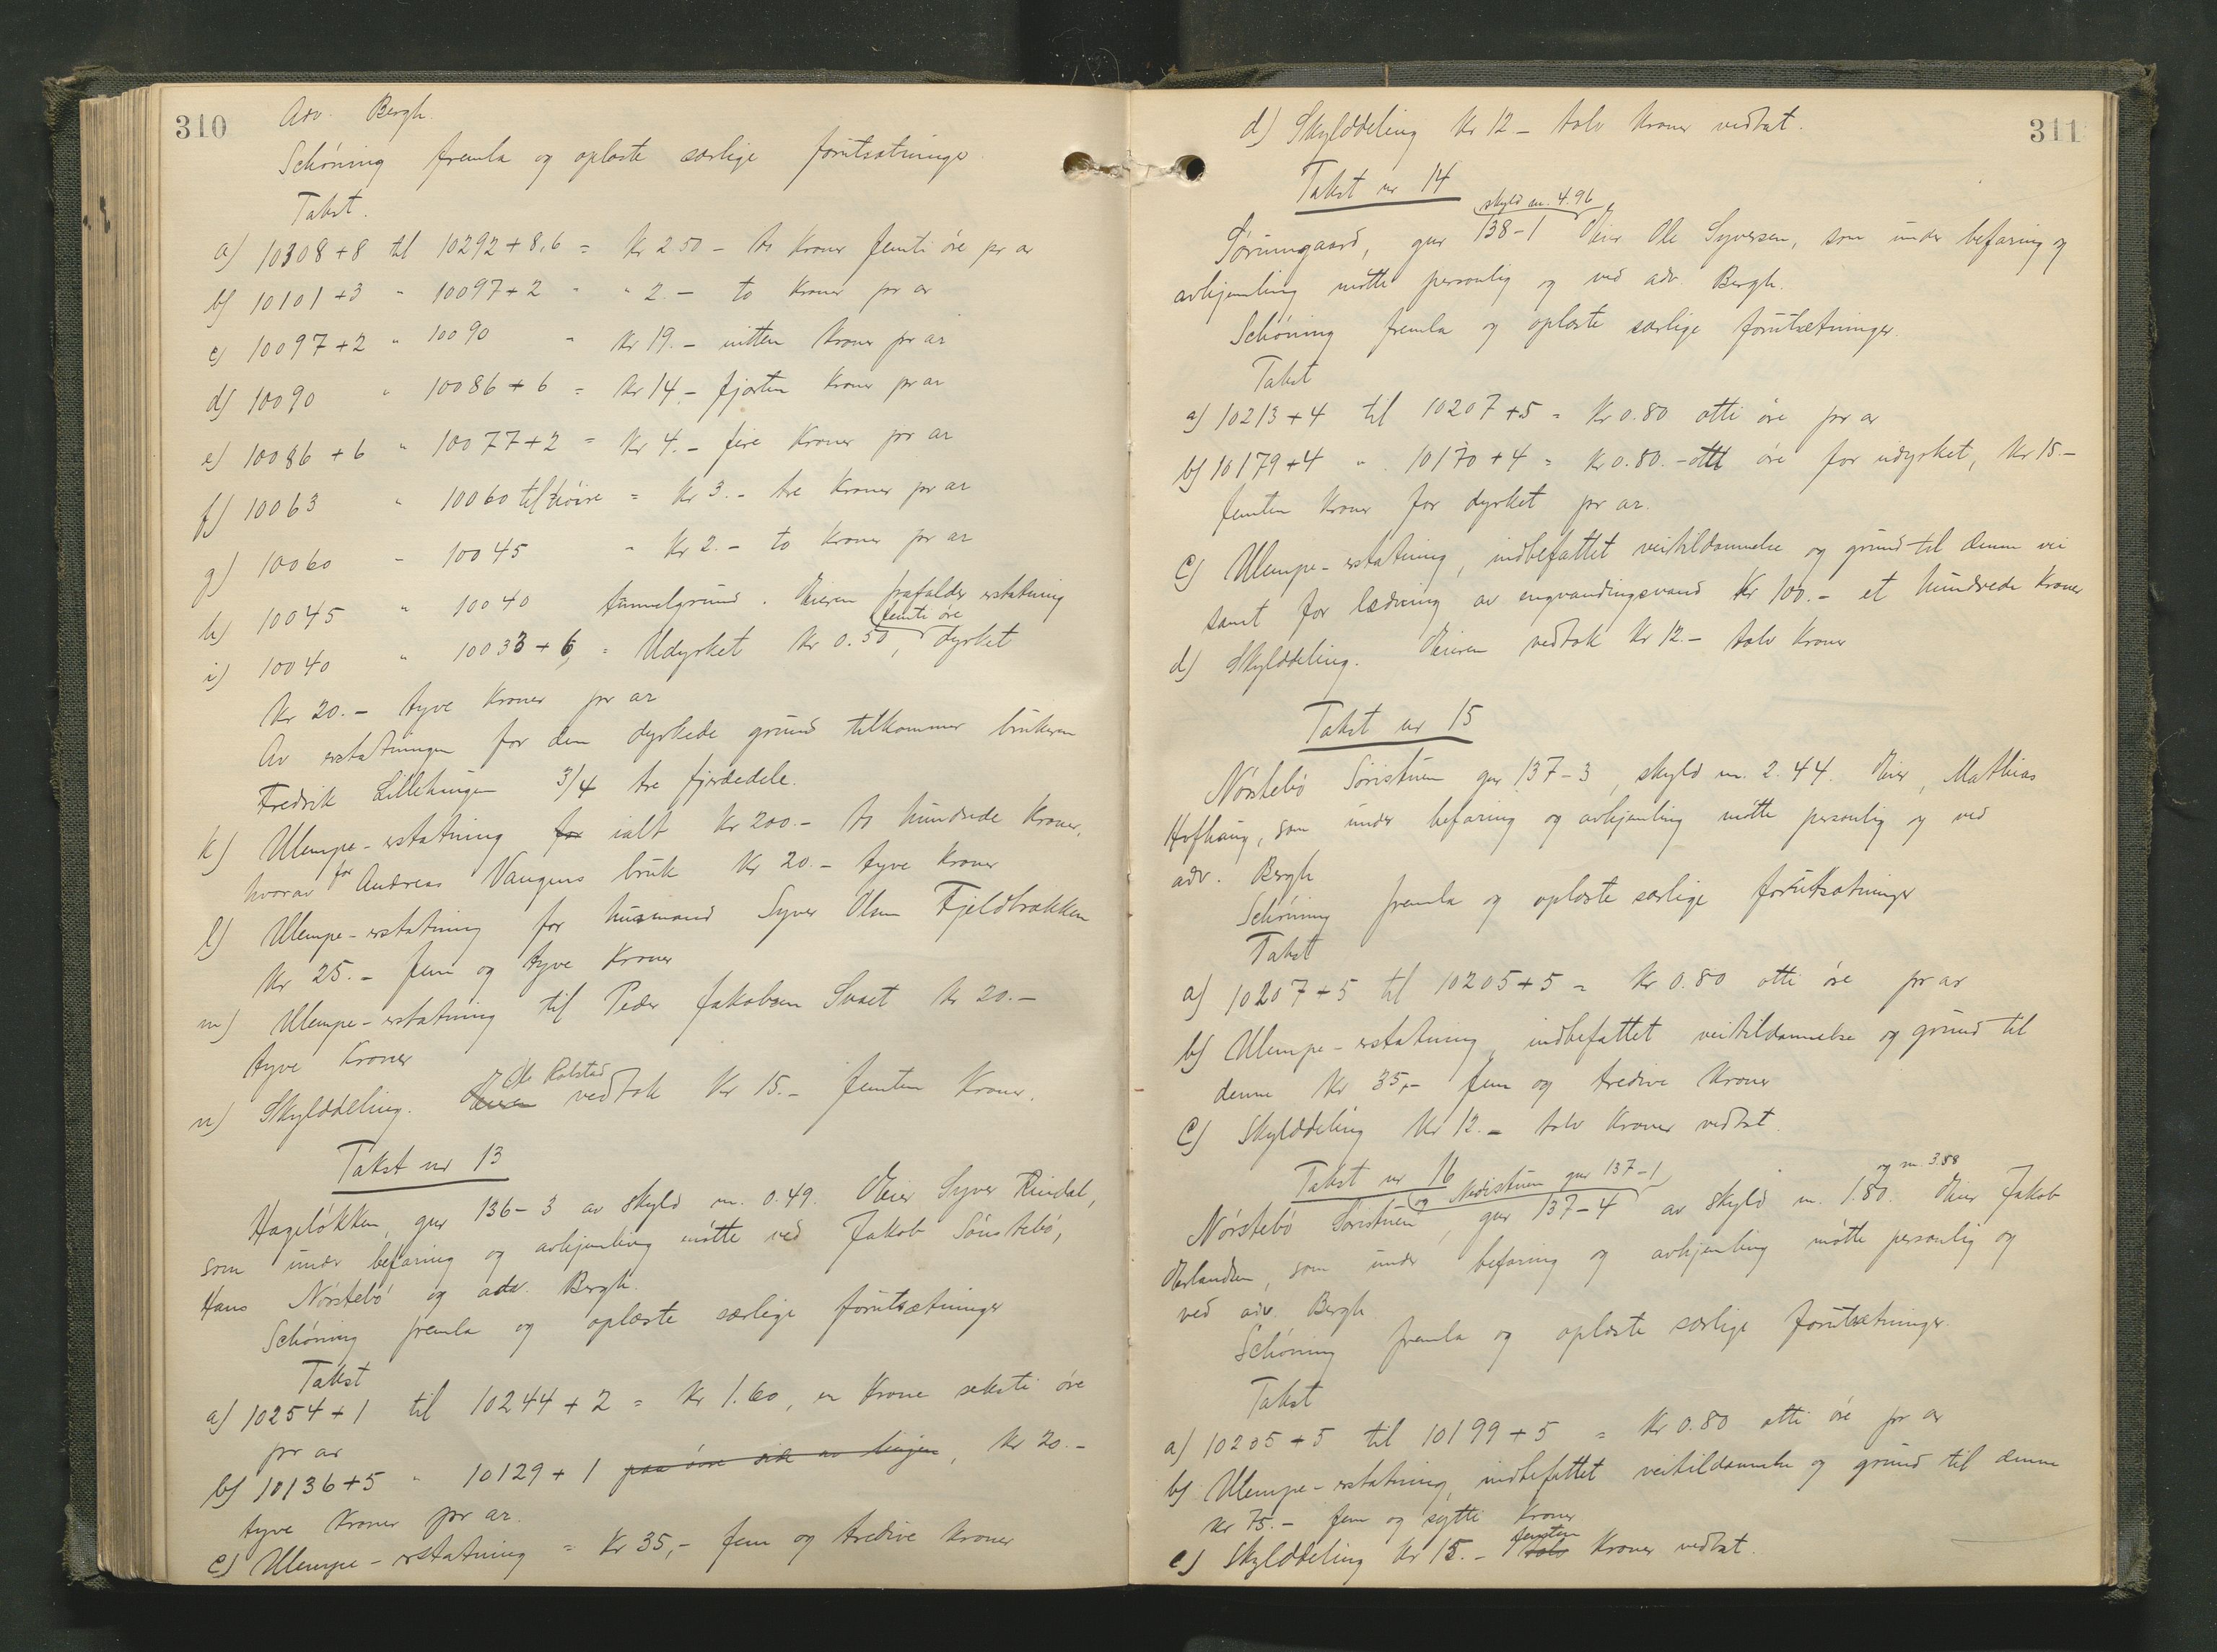 310
Adv. Bergh.
Schöning fremla og oplæste særlige forutsætninger.
Takst.
a) 10308+8 til 10292+8,6 = Kr 2.50 - to Kroner femti øre pr ar
b) 10101+3 " 10097+2 " " 2.- to Kroner pr ar
c) 10097+2 " 10090 " Kr 19.- nitten Kroner pr ar
d) 10090 " 10086+6 = Kr 14.- fjorten Kroner pr ar
e) 10086+6 " 10077+2 = Kr 4.- fire Kroner pr ar
f) 10063 " 10060 til høire = Kr 3.- tre Kroner pr ar
g) 10060 - 10045 " Kr 2.- to Kroner pr ar
h) 10045 " 10040 tunnelgrund. Eieren frafalder erstatning
i) 10040 " 10033+6, = Udyrket Kr 0.50, femti øre, dyrket
Kr 20.- tyve Kroner pr ar
Av erstatningen for den dyrkede grund tilkommer brukeren
Fredrik Lillehaugen 3/4 tre fjerdedele.
k) Ulempe-erstatning for ialt Kr 200.- to hundrede Kroner,
hvorav for Andreas Vangens bruk Kr 20.- tyve Kroner
l) Ulempe-erstatning for husmand Syver Olsen Fjeldbrækken
Kr 25.- fem og tyve Kroner
m) Ulempe-erstatning til Peder Jakobsen Svaet Kr 20.-
tyve Kroner
n) Skylddeling. Eieren Ole Rolstad vedtok Kr 15.- femten Kroner.
Takst nr 13
Hageløkken, gnr 136-3 av skyld m. 0.49. Eier Syver Rindal,
som under befaring og avhjemling møtte ved Jakob Sönstebö,
Hans Nörstebö og adv. Bergh.
Schöning fremla og oplæste særlige forutsætninger
Takst
a) 10254+1 til 10244+2 = Kr 1.60, en Krone seksti øre
pr ar
b) 10136+5 " 10129+1 paa øvre side av linjen, Kr 20.-
tyve Kroner pr ar.
c) Ulempe-erstatning = Kr 35,- fem og tredive Kroner
311
d) Skylddeling Kr 12- tolv Kroner vedtat.
Takst nr 14
skyld m. 4.96
Sörumgaard, gnr 138-1 Eier Ole Syversen, som under befaring og
avhjemling møtte personlig og ved adv. Bergh.
Schöning fremla og oplæste særlige forutsætninger.
Takst
a) 10213+4 til 10207+5 = Kr 0.80 otti øre pr ar
b) 10179+4 " 10170+4 = Kr 0.80.- otti øre for udyrket, Kr 15.-
femten Kroner for dyrket pr ar.
c) Ulempe-erstatning, indbefattet veitildannelse og grund til denne vei
samt for ledning av engvandingsvand Kr 100.- et hundrede Kroner
d) Skylddeling. Eieren vedtok Kr 12.- tolv Kroner
Takst nr 15
Nörstebö Söristuen gnr 137-3, skyld m. 2.44. Eier, Mathias
Hofhaug, som under befaring og avhjemling møtte personlig og ved
adv. Bergh
Schöning fremla og oplæste særlige forutsætninger
Takst
a) 10207+5 til 10205+5 = Kr 0.80 otti øre pr ar
b) Ulempe-erstatning, indbefattet veitildannelse og grund til
denne Kr 35,- fem og tredive Kroner
c) Skylddeling Kr 12.- tolv Kroner vedtat.
Takst nr 16
og Nedistuen gnr 137-1 og m. 3.88
Nörstebö Söristuen, gnr 137-4 av skyld m. 1.80. Eier Jakob
Erlandsen, som under befaring og avhjemling møtte personlig og
ved adv. Bergh
Schöning fremla og oplæste særlige forutsætninger.
Takst
a) 10205+5 til 10199+5 = Kr 0.80 otti øre pr ar
b) Ulempe-erstatning, indbefattet veitildannelse og grund til denne
Kr 75.- fem og sytti Kroner
c) Skylddeling Kr 15.- tolv femten Kroner vedtat.